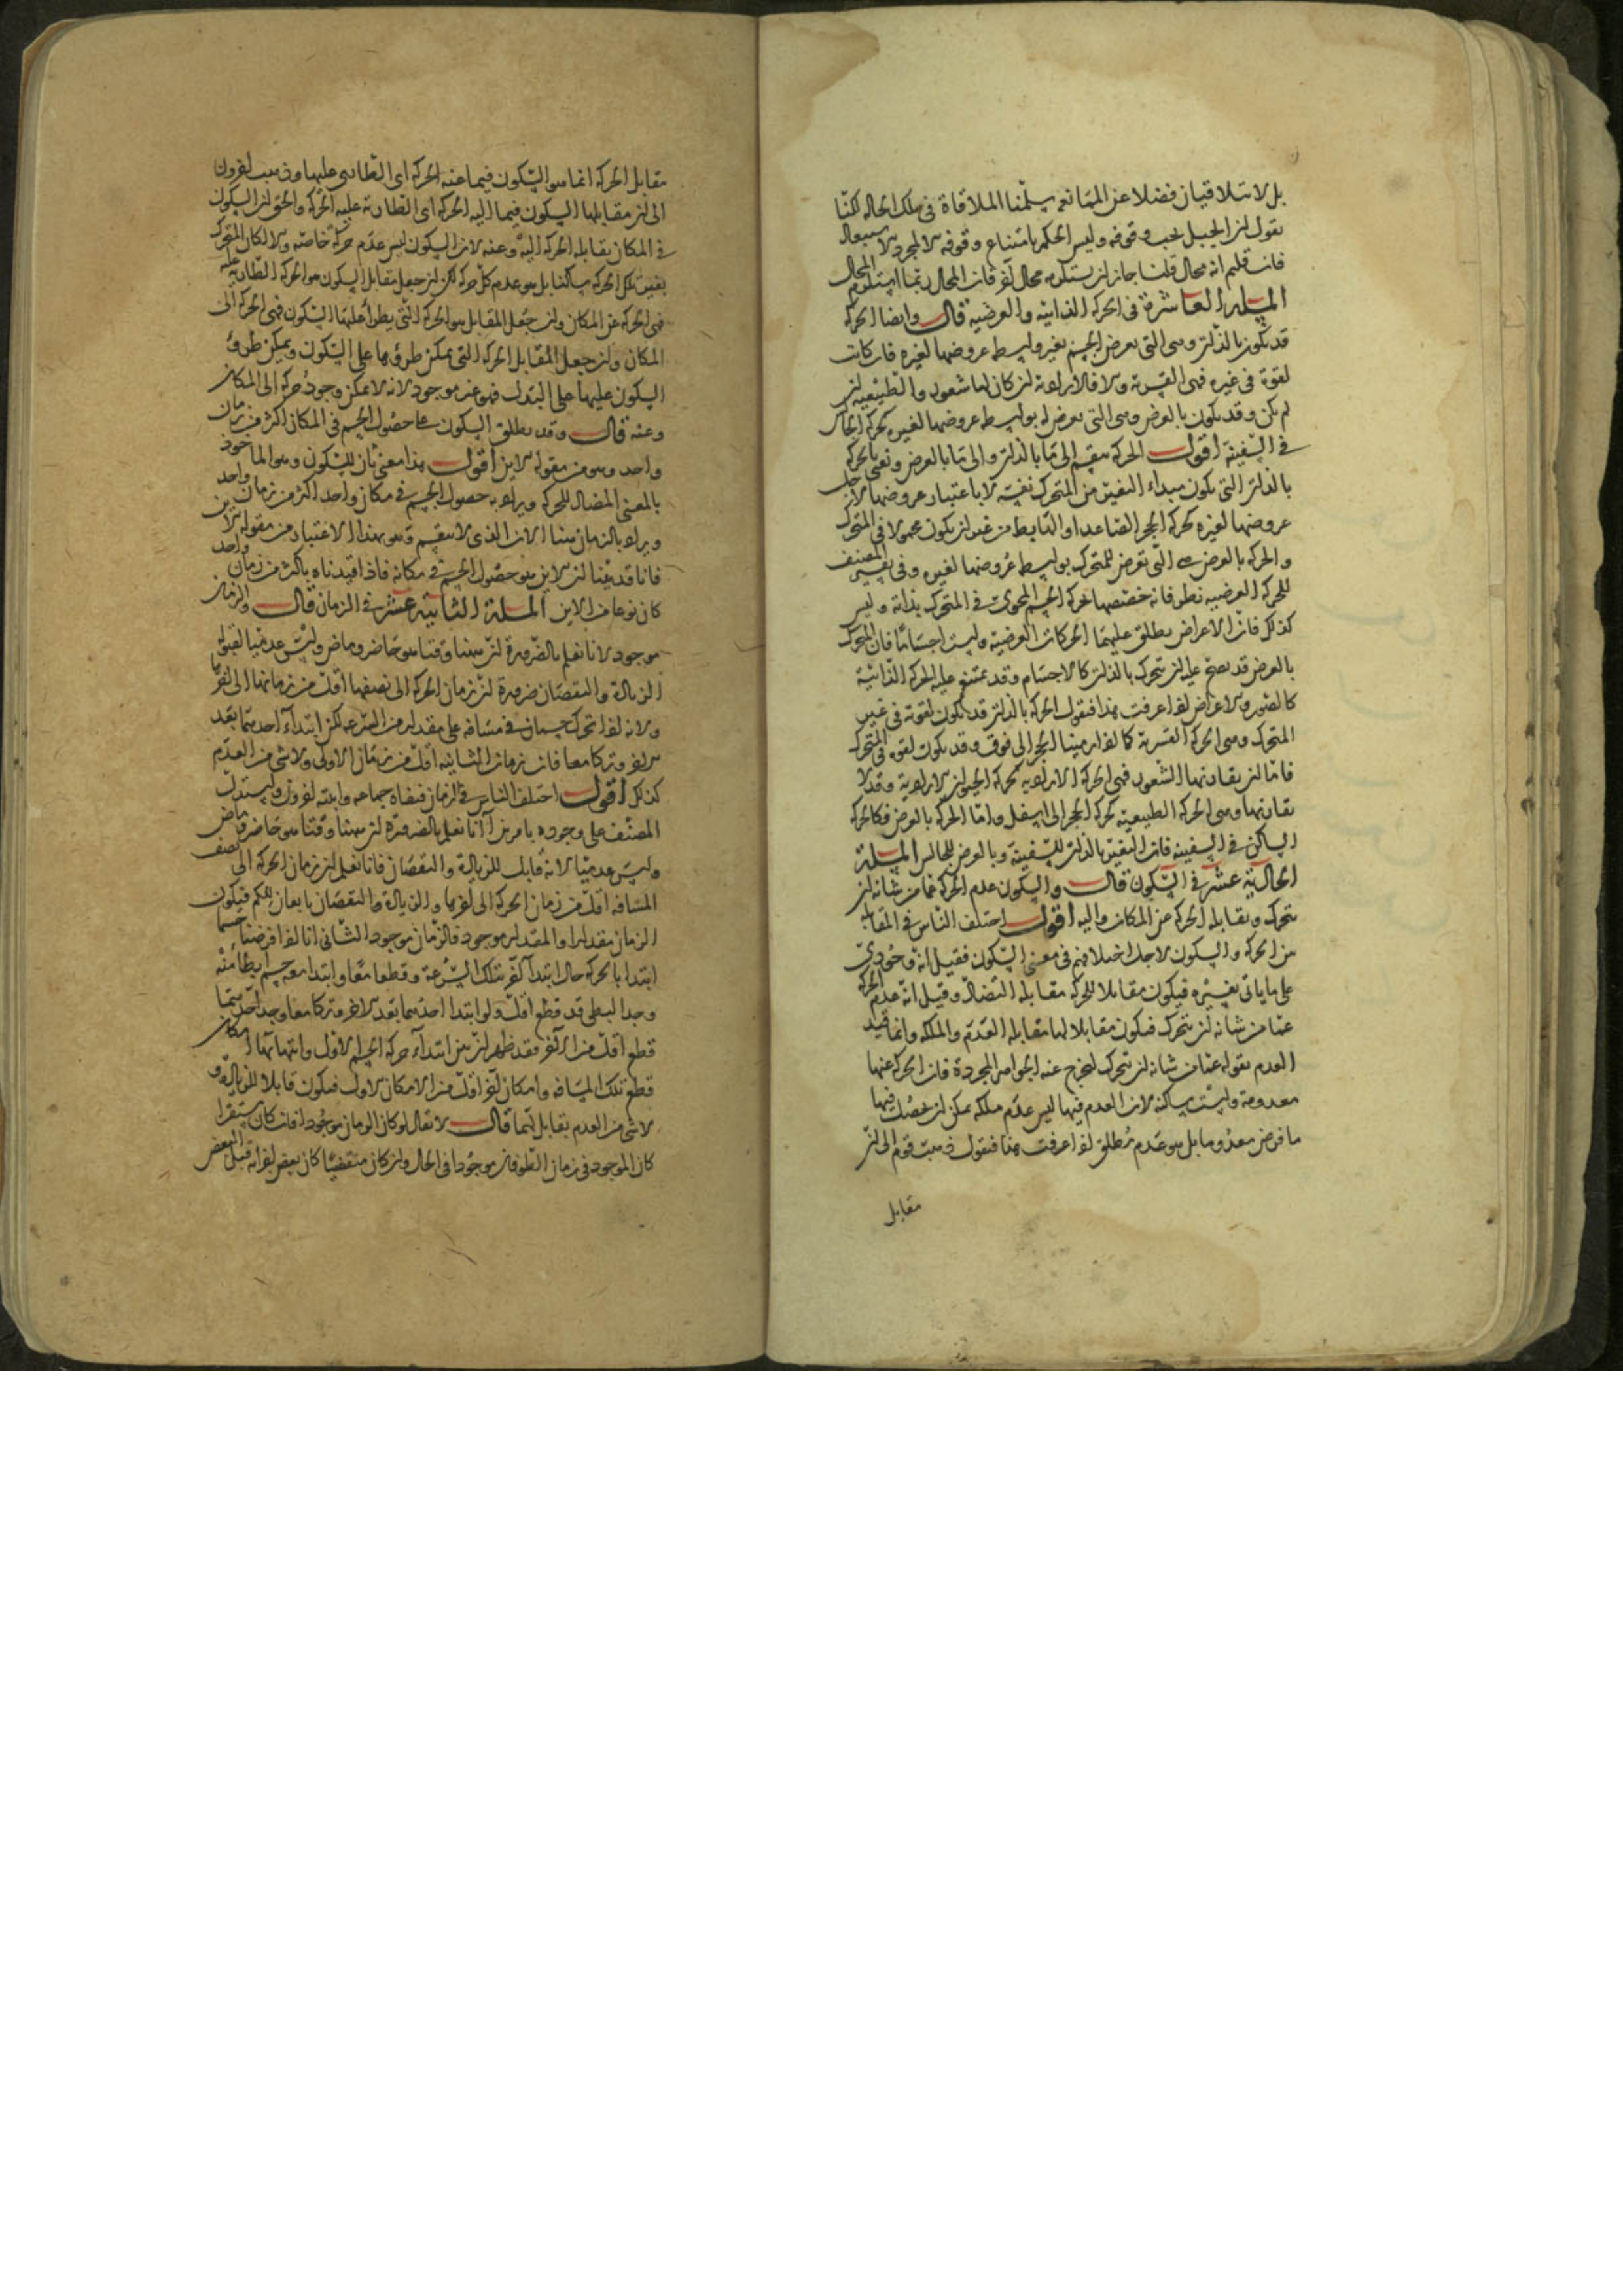 بل لا يتلاقيان فضلا عن الممانعة سلمنا الملاقاة في تلك الحالة لكنا
نقول ان الجبل يجب وقوفه وليس الحكم بامتناع وقوفه الا لمجرد الاستبعاد
فان قلتم انه محال قلنا جاز ان يستلزمه محال آخر فان المحال ربما استلزم المحال
المسلة العاشرة في الحركة الذاتية والعرضية قال وايضا الحركة
قد تكون بالذات وهي التي تعرض للجسم بغير واسطة عروضها لغيره فان كانت
لقوة في غيره فهي القسرية والا فالارادية ان كان لها شعور والطبيعية ان
لم يكن وقد تكون بالعرض وهي التي تعرض له بواسطة عروضها لغيره كحركة الجالس
في السفينة اقول الحركة تنقسم الى ما بالذات والى ما بالعرض ونعني بالحركة
بالذات التي يكون مبداء التغير من المتحرك نفسه لا باعتبار عروضها لاجل
عروضها لغيره كحركة الحجر الصاعد او الهابط من غير ان يكون محمولا في المتحرك
والحركة بالعرض هي التي تعرض للمتحرك بواسطة عروضها لغيره وفي تفسير المصنف
للحركة العرضية نظر فانه خصصها بحركة الجسم المحوى في المتحرك بذاته وليس
كذلك فان الاعراض يطلق عليها الحركات العرضية وليست اجساما فان المتحرك
بالعرض قد يصح عليه ان يتحرك بالذات كالاجسام وقد يمتنع عليه الحركة الذاتية
كالصور والاعراض اذا عرفت هذا فنقول الحركة بالذات قد تكون لقوة في غير
المتحرك وهي الحركة القسرية كما اذا رمينا الحجر الى فوق وقد يكون لقوة في المتحرك
فاما ان يقارنها الشعور فهي الحركة الارادية كحركة الحيوان الارادية وقد لا
يقارنها وهي الحركة الطبيعية كحركة الحجر الى اسفل واما الحركة بالعرض فكالحركة
الساكن في السفينة فان التغير بالذات للسفينة وبالعرض للجالس المسلة
الحادية عشر في السكون قال والسكون عدم الحركة عما من شانه ان
يتحرك ويقابله الحركة عن المكان واليه اقول اختلف الناس في المقابلة
بين الحركة والسكون لاجل اختلافهم في معنى السكون فقيل انه وجودي
على ما ياتي تفسيره فيكون مقابلا للحركة مقابلة التضاد وقيل انه عدم الحركة
عما من شانه ان يتحرك فيكون مقابلا لها مقابلة العدم والملكة وانما قيد
العدم بقوله عما من شانه ان يتحرك ليخرج عنه الجواهر المجردة فان الحركة عنها
معدومة وليست ساكنة لان العدم فيها ليس عدم ملكة يمكن ان تحصل فيها
ما فرض معدوما بل هو عدم مطلق اذا عرفت هذا فنقول ذهب قوم الى ان
مقابل
مقابل الحركة انما هو السكون فيما عنه الحركة اى الطارى عليها وذهب آخرون
الى ان مقابلها السكون فيما اليه الحركة اى الطارئة عليه الحركة والحق ان السكون
في المكان يقابله الحركة اليه وعنه لان السكون ليس عدم حركة خاصة والا لكان المتحرك
بغير تلك الحركة ساكنا بل هو عدم كل حركة لكن ان جعل مقابل السكون هو الحركة الطارية عليه
فهي الحركة عن المكان وان جعل المقابل هو الحركة التي يطرا عليها السكون فهي الحركة الى
المكان وان جعل المقابل الحركة التي يمكن طروها على السكون ويمكن طرو
السكون عليها على البدل فهو غير موجود لانه لا يمكن وجود حركة الى المكان
وعنه قال وقد يطلق السكون على حصول الجسم في المكان اكثر من زمان
واحد وهو من مقولة الاين اقول هذا معنى ثان للسكون وهو الماخوذ
بالمعنى المضاد للحركة ويراد به حصول الجسم في مكان واحد اكثر من زمان واحد
ويراد بالزمان هنا الان الذى لا ينقسم وهو بهذا الاعتبار من مقولة الاين
فانا قد بينا ان الاين هو حصول الجسم في مكانه فاذا قيدناه باكثر من زمان واحد
كان نوعا من الاين المسلة الثانية عشر في الزمان قال والزمان
موجود لانا نعلم بالضرورة ان هنا وقتا هو حاضر وماض وليس عدميا لقبوله
الزيادة والنقصان ضرورة ان زمان الحركة الى نصفها اقل من زمانها الى آخرها
ولانه اذا تحرك جسمان في مسافة على مقدار من السرعة لكن ابتداء احدهما بعد
الاخر وتركا معا فان زمان الثانية اقل من زمان الاولى ولا شى من العدم
كذلك اقول اختلف الناس في الزمان فنفاه جماعة واثبته آخرون واستدل
المصنف على وجوده بامرين آ انا نعلم بالضرورة ان هنا وقتا هو حاضر وماض
وليس عدميا لانه قابل للزيادة والنقصان فانا نعلم ان زمان الحركة الى نصف
المسافة اقل من زمان الحركة الى آخرها والزيادة والنقصان تابعان للكم فيكون
الزمان مقدارا والمقدار موجود فالزمان موجود الثاني انا اذا فرضنا جسما
ابتدا بالحركة حال ابتدا آخر بتلك السرعة وقطعا معا وابتدا معه جسم ابطا منه
وجدا البطي قد قطع اقل ولو ابتدا احدهما بعد الاخر وتركا معا وجدا احدهما
قطع اقل من الآخر فقد ظهر ان بين ابتداء حركة الجسم الاول وانتهائها امكان
قطع تلك المسافة وامكان آخر اقل من الامكان الاول فيكون قابلا للزيادة و
لا شى من العدم بقابل لهما قال لا يقال لو كان الزمان موجودا فان كان مستقرا
كان الموجود في زمان الطوفان موجودا في الحال وان كان منقضيا كان بعض اجزائه قبل البعض